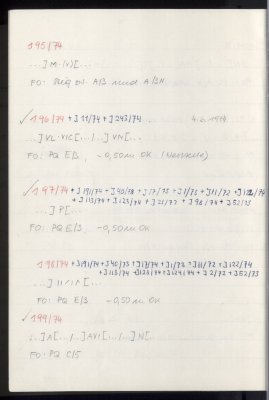 195/74
...]M·IV)[...
FO: A/3 A/3N
✓ 196/74 + J 11/74 + J 243/74 4.6.1974
...]VL·VIC[.../...]VN[...
FO: PQ E/3, -0,50m OK
✓ 197/74 + J 191/74 + J 40/73 + J 17/73 + J 1/73 + J 11/72 + J 122/74
+ J 113/74 + J 123/74 + J 21/72 + J 98/74 + J 52/73
...]P[...
FO: PQ E/3, -0,50m OK
198/74 + J 191/74 + J 40/73 + J 17/74 + J 1/73 + J 11/72 + J 122/74
+ J 113/74 + J 123/74 + J 124/74 + J 2/72 + J 52/73
...]II/IΛ[...
FO: PQ E/3 -0,50m OK
✓ 199/74
...]Λ[.../...]AVI[.../...]N[...
FO: PQ C/5